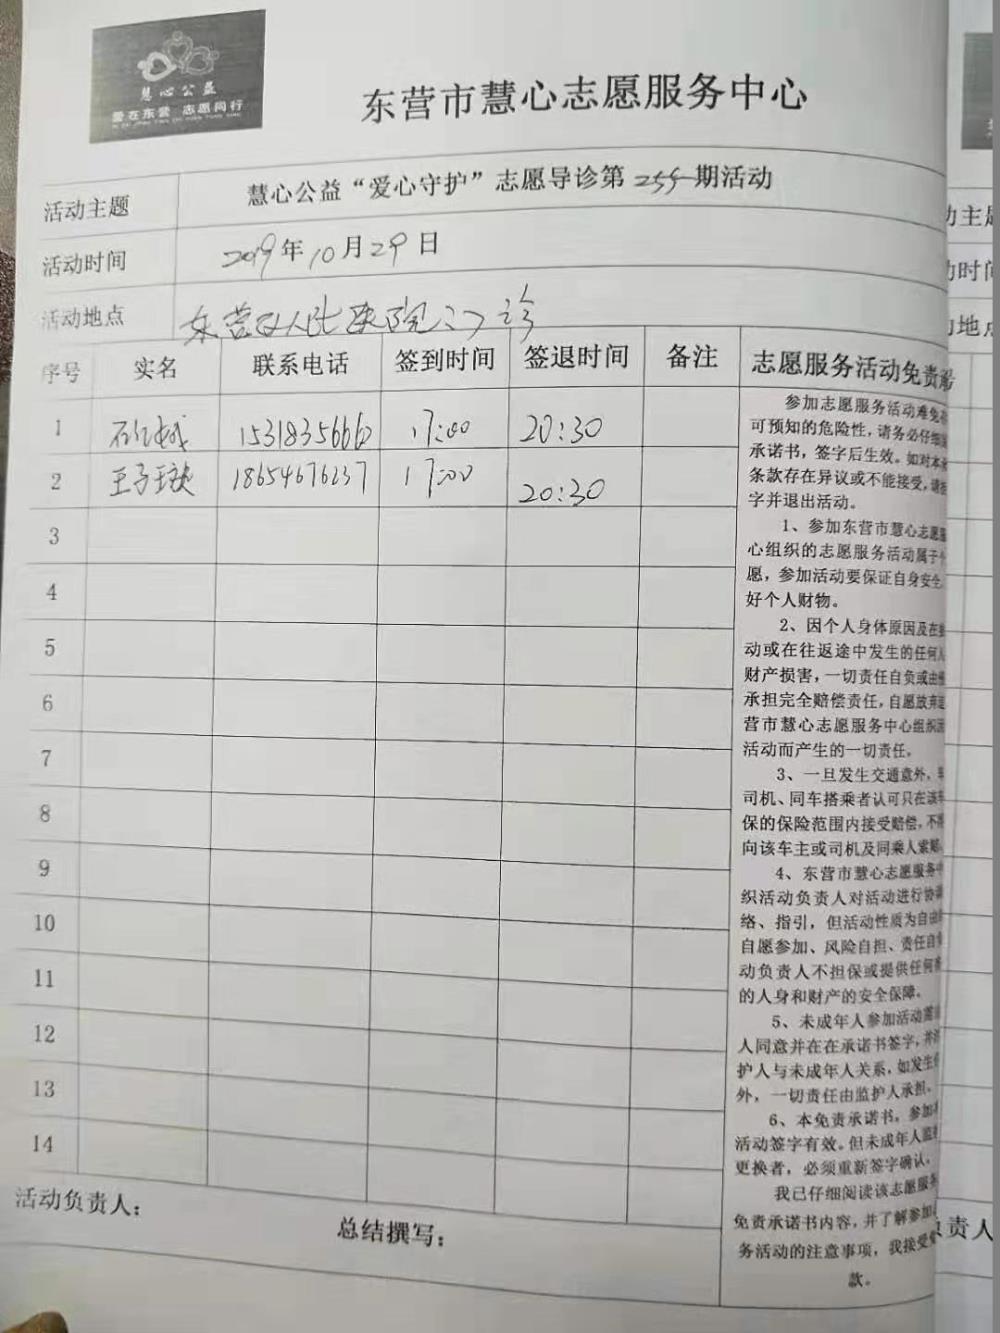 慧心公益
爱在东营 志愿同行
东营市慧心志愿服务中心
活动主题
慧心公益“爱心守护”志愿导诊第255期活动
活动时间
2019年10月29日
活动地点
东营区人民医院门诊
序号 实名 联系电话 签到时间 签退时间 备注 志愿服务活动免责
1 15318356660 17:00 20:30
2 王子 18654676237 17:00 20:30
3
4
5
6
7
8
9
10
11
12
13
14
参加志愿服务活动难免
可预知的危险性，请务必仔细
承诺书，签字后生效。如对本
条款存在异议或不能接受，请
字并退出活动。
1、参加东营市慧心志愿
心组织的志愿服务活动属于
愿，参加活动要保证自身安全
好个人财物。
2、因个人身体原因及在
动或在往返途中发生的任何
财产损害，一切责任自负或由
承担完全赔偿责任，自愿放弃
营市慧心志愿服务中心组织
活动而产生的一切责任。
3、一旦发生交通意外，
司机、同车搭乘者认可只在该
保的保险范围内接受赔偿，不
向该车主或司机及同乘人索赔
4、东营市慧心志愿服务
织活动负责人对活动进行协
络、指引，但活动性质为自由
自愿参加、风险自担、责任自
动负责人不担保或提供任何
的人身和财产的安全保障。
5、未成年人参加活动需
人同意并在在承诺书签字，并
护人与未成年人关系，如发生
外，一切责任由监护人承担。
6、本免责承诺书，参加
活动签字有效。但未成年人监
更换者，必须重新签字确认。
我已仔细阅读该志愿服
免责承诺书内容，并了解参加
务活动的注意事项，我接受
款。
活动负责人：
总结撰写：
动主
动时
地点
负责人